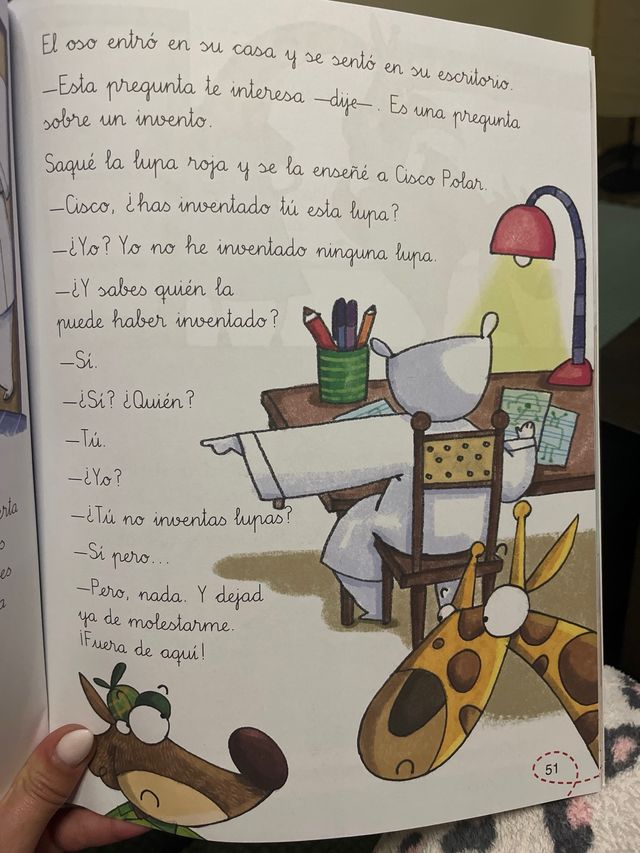 El oso entró en su casa y se sentó en su escritorio.
—Esta pregunta te interesa —dije—. Es una pregunta
sobre un invento.
Saqué la lupa roja y se la enseñé a Cisco Polar.
—Cisco, ¿has inventado tú esta lupa?
—¿Yo? Yo no he inventado ninguna lupa.
—¿Y sabes quién la
puede haber inventado?
—Sí.
—¿Sí? ¿Quién?
—Tú.
—¿Yo?
—¿Tú no inventas lupas?
—Sí pero...
—Pero, nada. Y dejad
ya de molestarme.
¡Fuera de aquí!
51